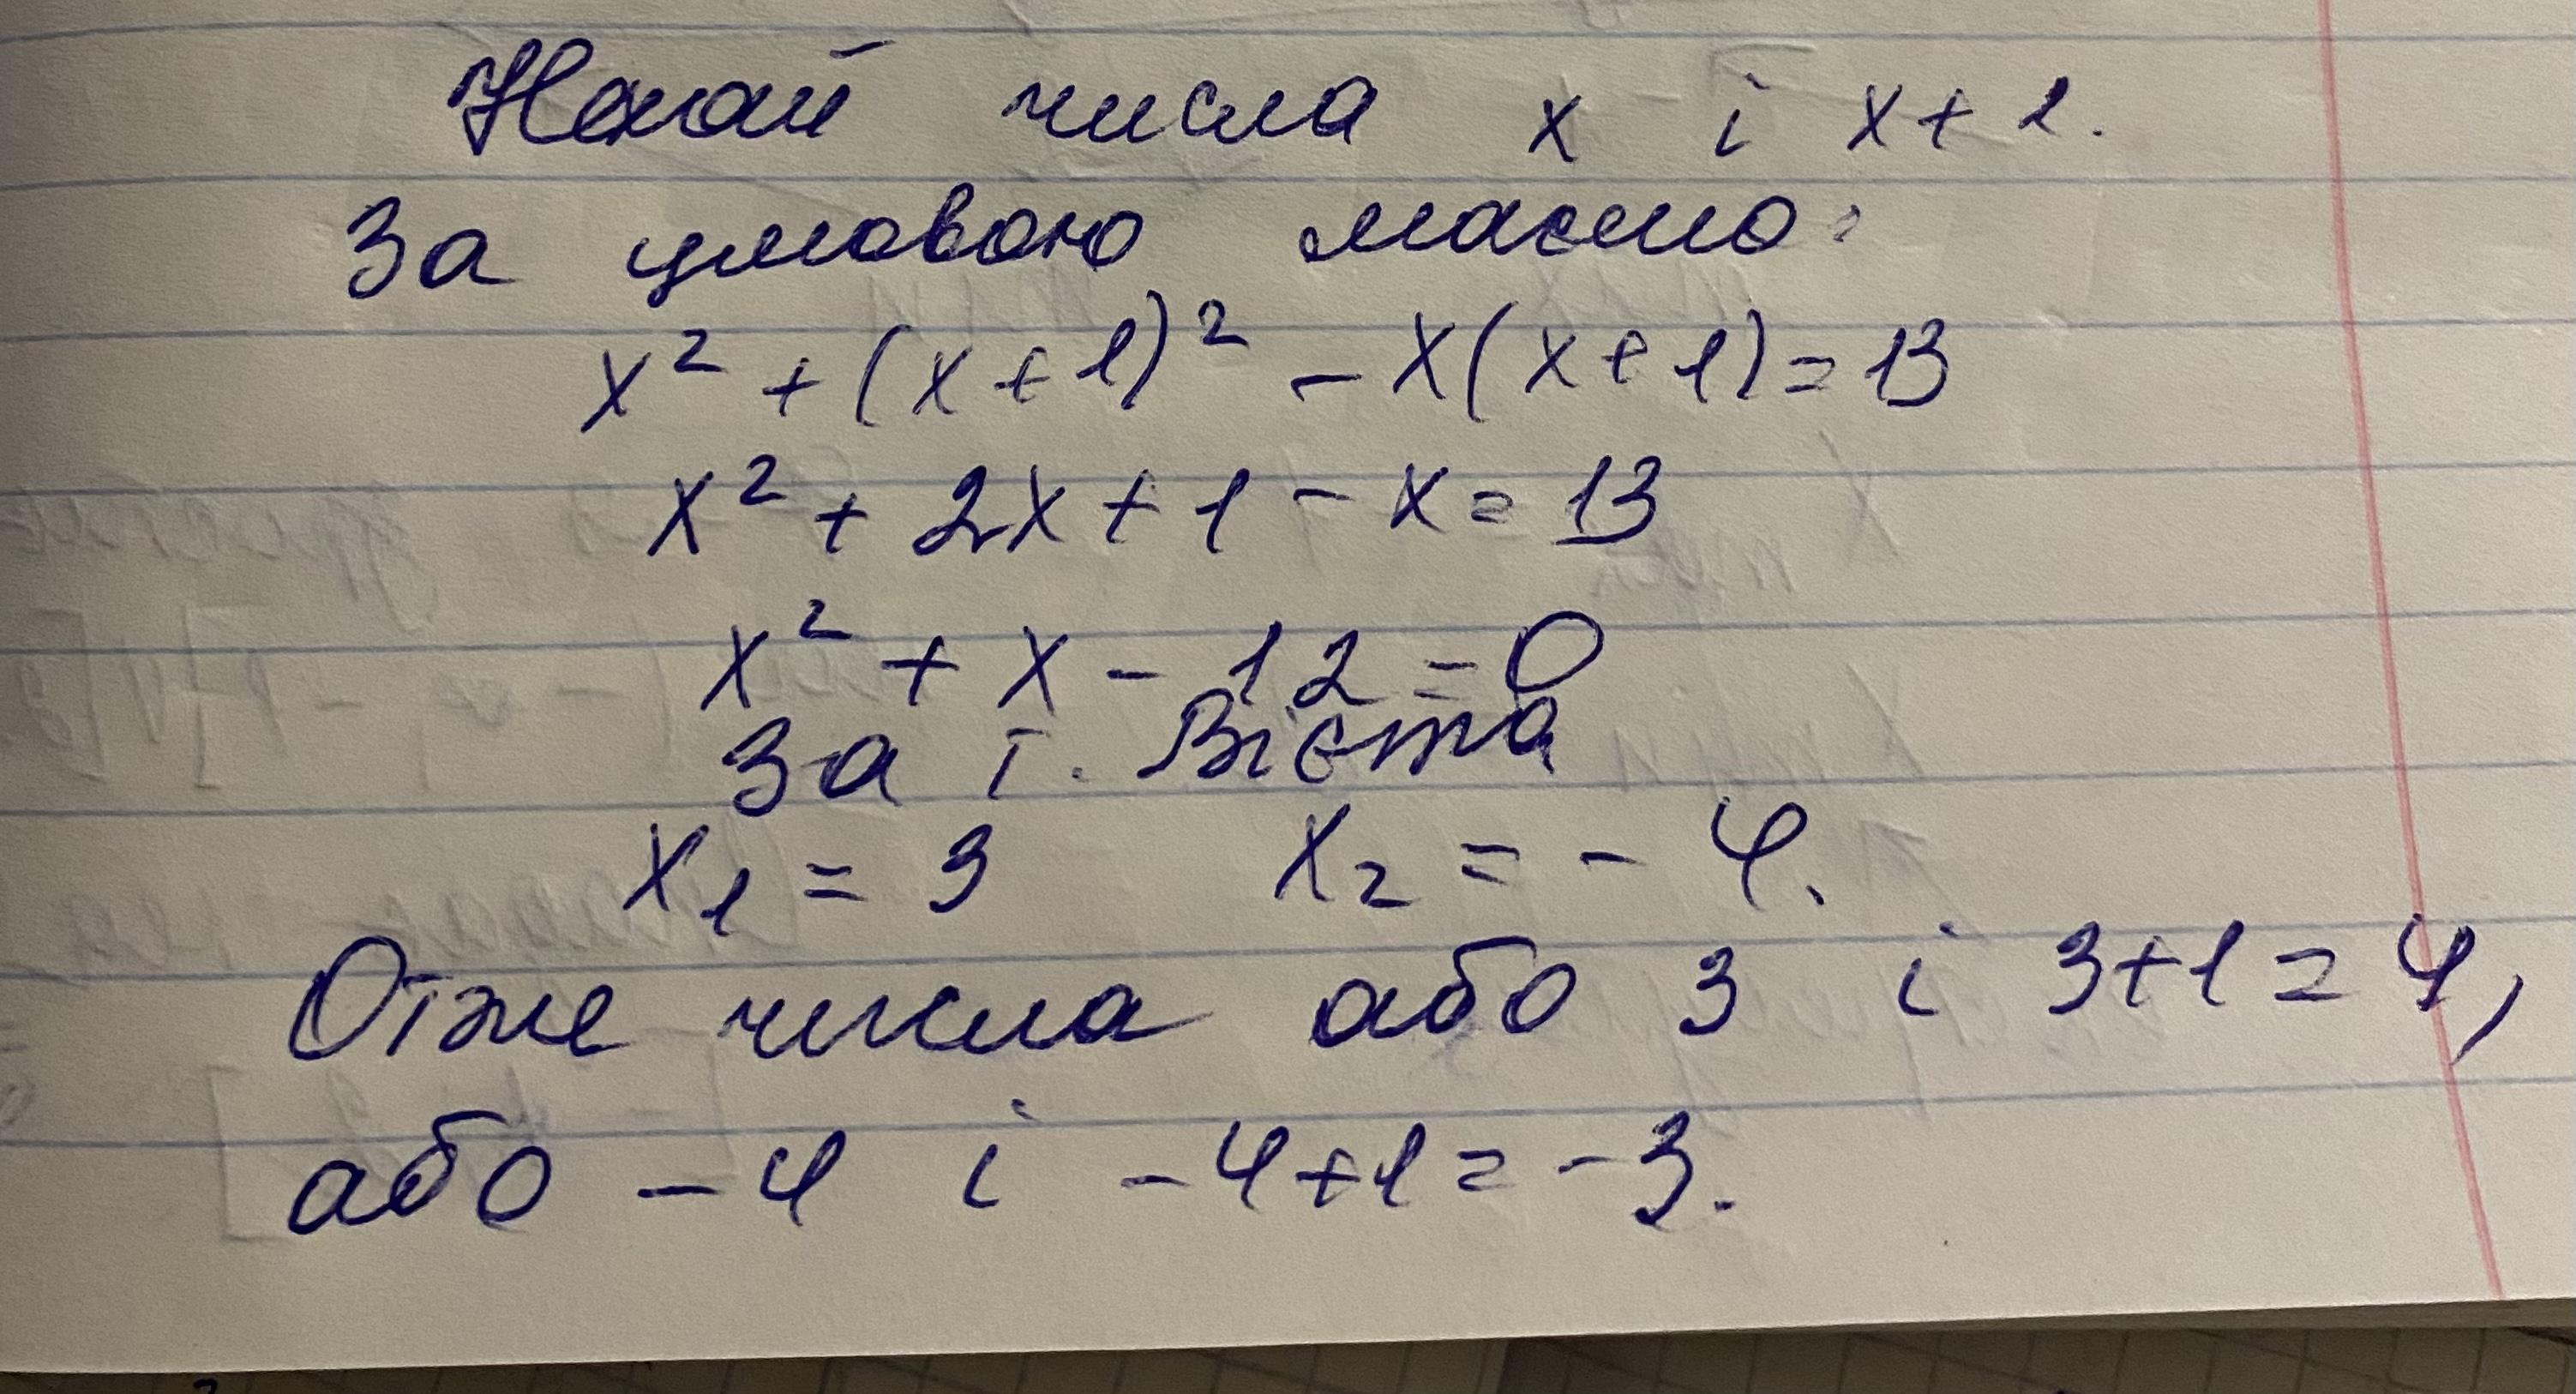 Нехай числа x і x+1.
За умовою маємо:
x² + (x+1)² - x(x+1) = 13
x² + 2x + 1 - x = 13
x² + x - 12 = 0
За т. Вієта
x₁ = 3 x₂ = - 4.
Отже числа або 3 і 3+1=4,
або -4 і -4+1=-3.